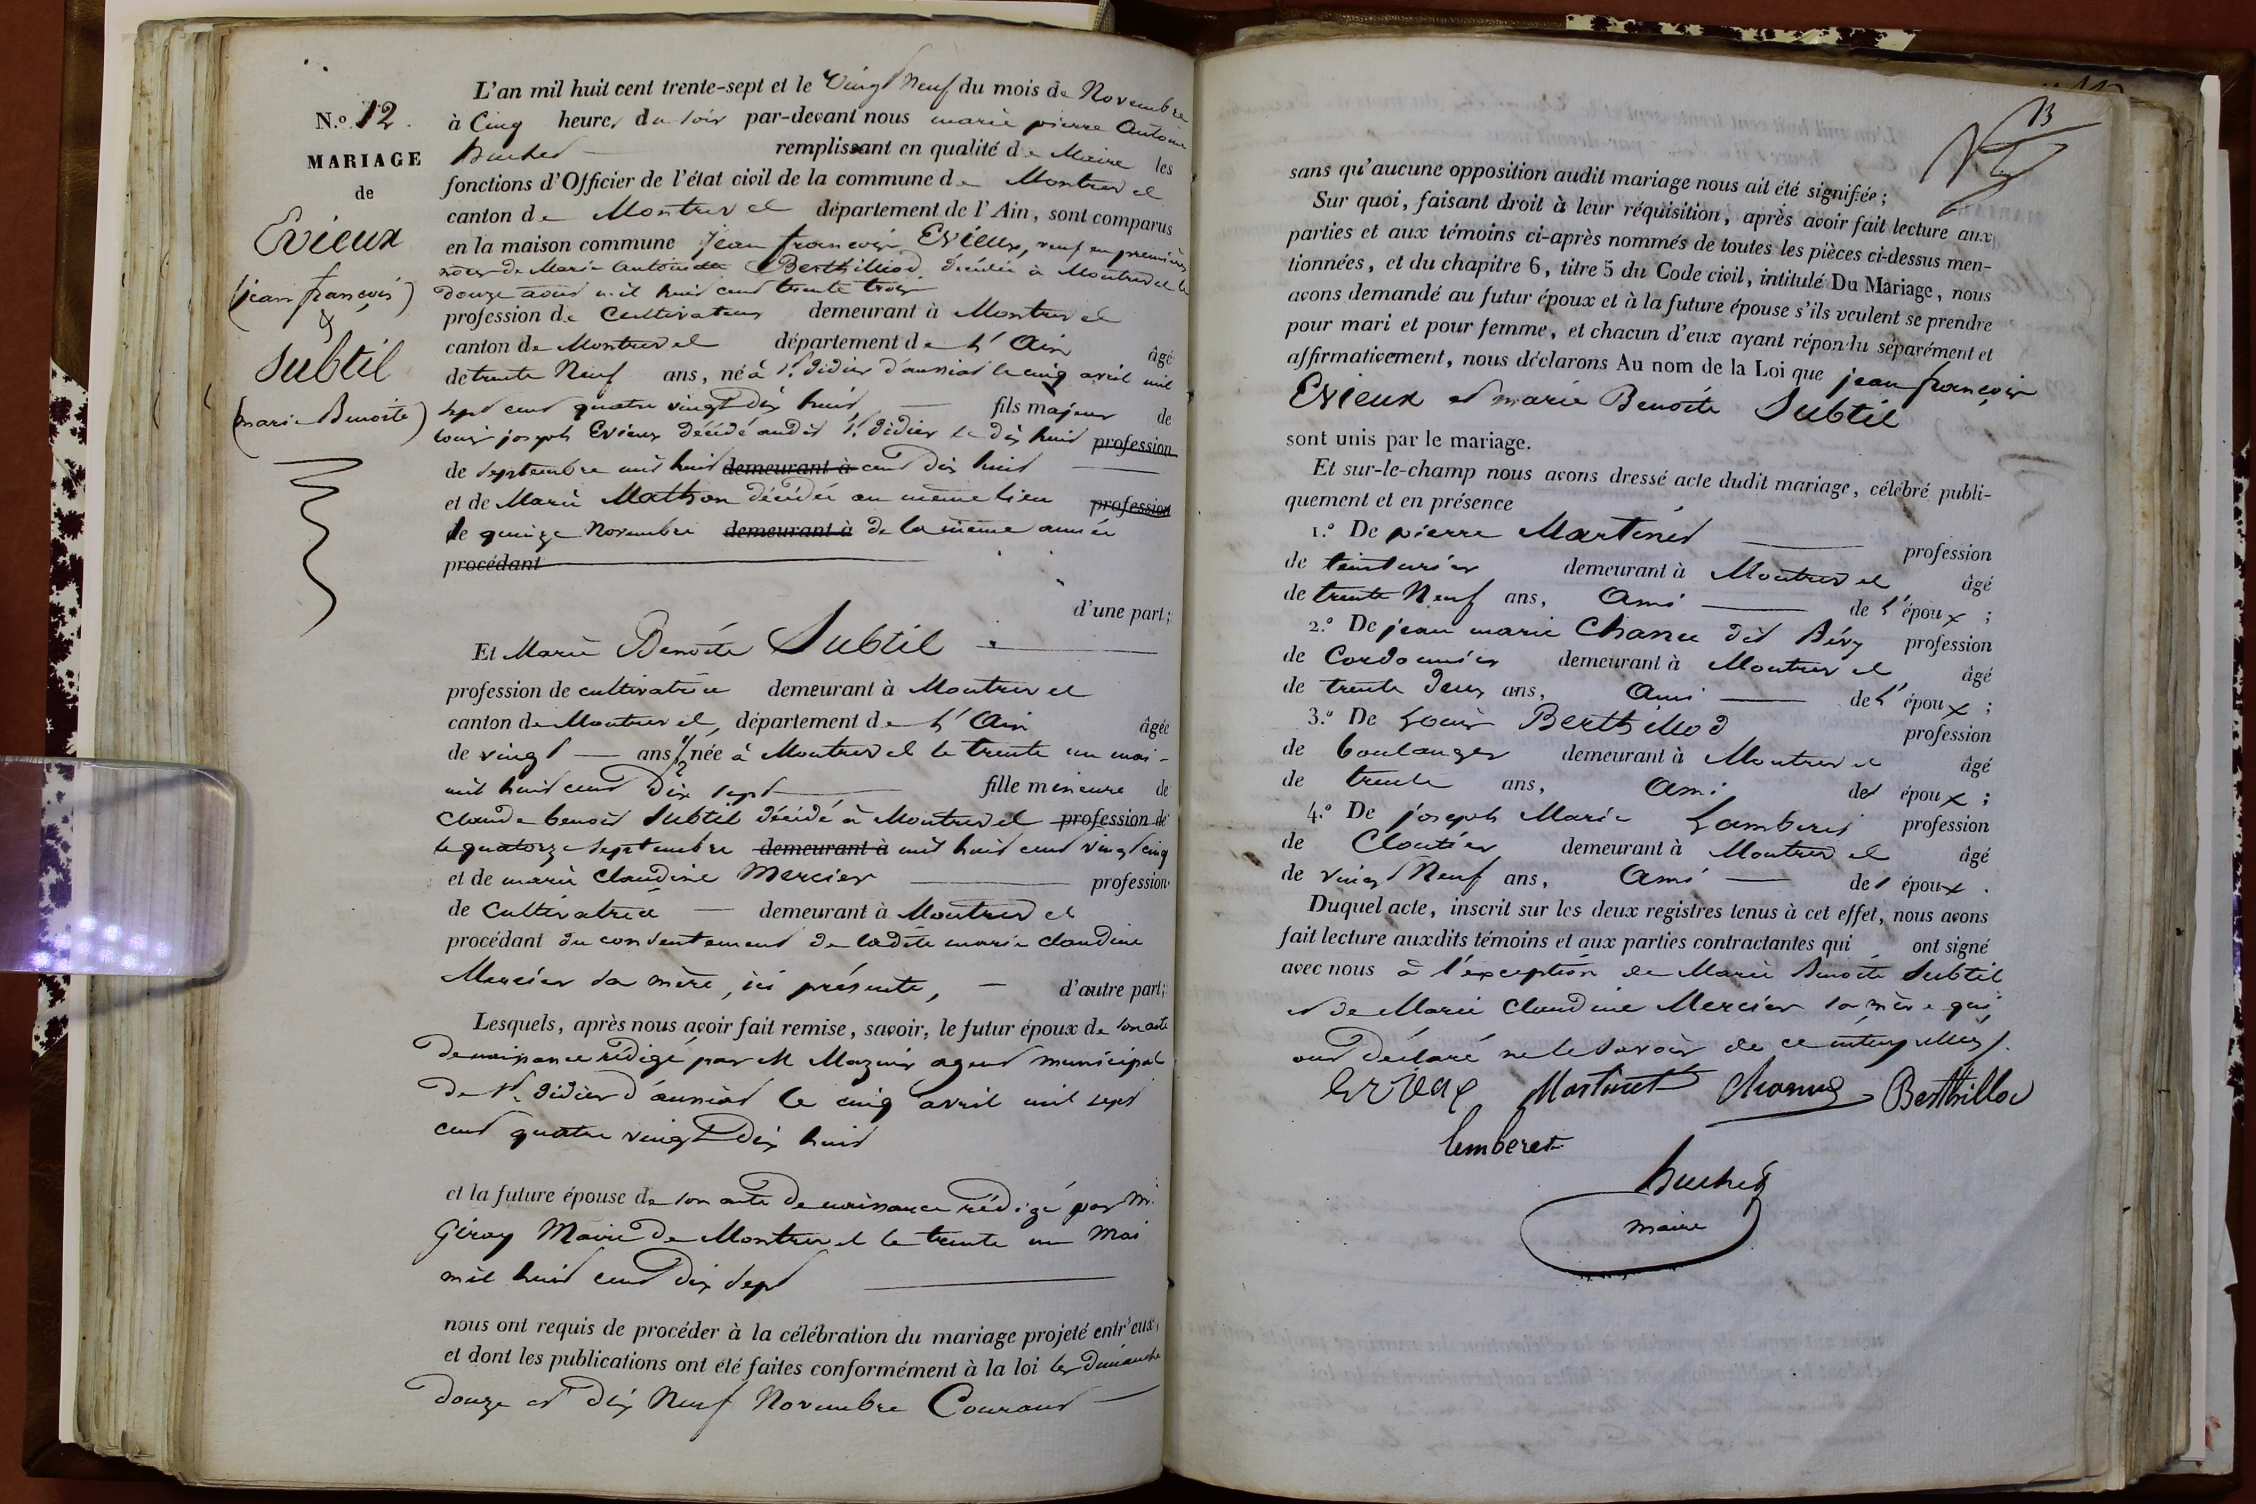 N.º 12.
MARIAGE
de
Evieux
(jean françois)
&
Subtil
(marie Benoite)
L'an mil huit cent trente-sept et le Vingt Neuf du mois de Novembre
à Cinq heures du soir par-devant nous marie pierre Antoine
Buchet remplissant en qualité de Maire les
fonctions d'Officier de l'état civil de la commune de Montrevel
canton de Montrevel département de l'Ain, sont comparus
en la maison commune jean françois Evieux, veuf en premières
noces de Marie Antoinette Berthilliod décédée à Montrevel le
douze août mil huit cent trente trois
profession de Cultivateur demeurant à Montrevel
canton de Montrevel département de l'Ain âgé
de trente Neuf ans, né à St. Didier d'aussiat le cinq avril mil
sept cent quatre vingt dix huit fils majeur de
louis joseph Evieux décédé audit St. Didier le dix huit profession
de septembre mil huit demeurant à cent dix huit
et de Marie Mathon décédée au même lieu profession
le quinze Novembre demeurant à de la même année
procédant
d'une part;
Et Marie Benoite Subtil
profession de cultivatrice demeurant à Montrevel
canton de Montrevel, département de l'Ain âgée
de vingt ans ½ née à Montrevel le trente un mai
mil huit cent dix sept fille mineure de
Claude benoit Subtil décédé à Montrevel profession de
le quatorze septembre demeurant à mil huit cent vingt cinq
et de marie Claudine Mercier profession
de Cultivatrice demeurant à Montrevel
procédant du consentement de ladite marie claudine
Mercier sa mère, ici présente, d'autre part;
Lesquels, après nous avoir fait remise, savoir, le futur époux de son acte
de naissance rédigé par M Mazuir agent municipal
de St. Didier d'aussiat le cinq avril mil sept
cent quatre vingt dix huit
et la future épouse de son acte de naissance rédigé par Mr.
Géray Maire de Montrevel le trente un Mai
mil huit cent dix sept
nous ont requis de procéder à la célébration du mariage projeté entr'eux,
et dont les publications ont été faites conformément à la loi les dimanche
douze et dix Neuf Novembre Courant
13
sans qu'aucune opposition audit mariage nous ait été signifiée;
Sur quoi, faisant droit à leur réquisition, après avoir fait lecture aux
parties et aux témoins ci-après nommés de toutes les pièces ci-dessus men-
tionnées, et du chapitre 6, titre 5 du Code civil, intitulé Du Mariage, nous
avons demandé au futur époux et à la future épouse s'ils veulent se prendre
pour mari et pour femme, et chacun d'eux ayant répondu séparément et
affirmativement, nous déclarons Au nom de la Loi que jean françois
Evieux et marie Benoite Subtil
sont unis par le mariage.
Et sur-le-champ nous avons dressé acte dudit mariage, célébré publi-
quement et en présence
1.º De pierre Martinet profession
de teinturier demeurant à Montrevel âgé
de trente Neuf ans, Ami de l'époux ;
2.º De jean marie Chanu dit Bévy profession
de Cordonnier demeurant à Montrevel âgé
de trente deux ans, Ami de l'époux ;
3.º De Louis Berthillod profession
de boulanger demeurant à Montrevel âgé
de trente ans, Ami de l époux ;
4.º De joseph Marie Lamberet profession
de Cloutier demeurant à Montrevel âgé
de vingt Neuf ans, Ami de l époux .
Duquel acte, inscrit sur les deux registres tenus à cet effet, nous avons
fait lecture auxdits témoins et aux parties contractantes qui ont signé
avec nous à l'exception de Marie Benoite Subtil
et de Marie Claudine Mercier sa mère qui
ont déclaré ne le savoir de ce interpellés.
evieux Martinet Chanu Berthillod
lemberet
Buchet
maire